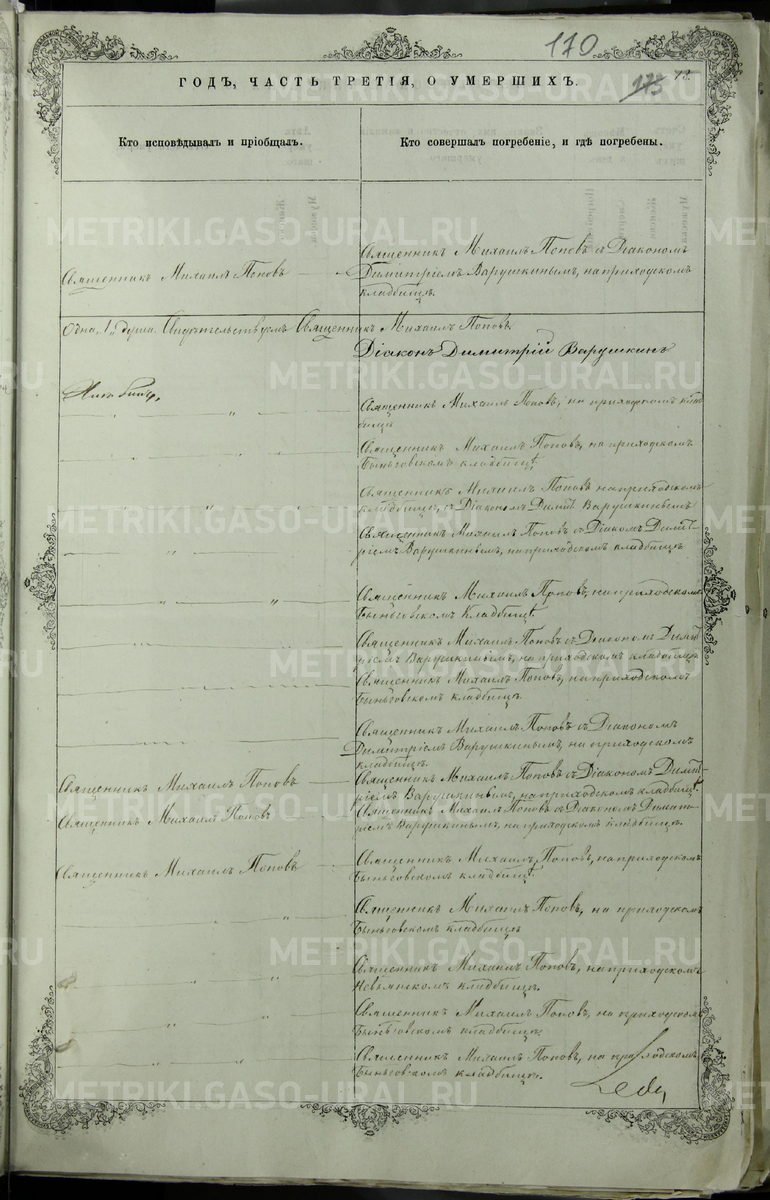 170
175
ГОДЪ, ЧАСТЬ ТРЕТІЯ, О УМЕРШИХЪ.
Кто исповѣдывалъ и пріобщалъ.
Кто совершалъ погребеніе, и гдѣ погребены.
Священникъ Михаилъ Поповъ съ Діакономъ
Священникъ Михаилъ Поповъ
Димитріемъ Варушкинымъ, на приходскомъ
кладбищѣ.
душа. Свидѣтельствуемъ Священникъ Михаилъ Поповъ
Діаконъ Димитрій Варушкинъ
Священникъ Михаилъ Поповъ, на приходскомъ клад
бищѣ
Священникъ Михаилъ Поповъ, на приходскомъ
Быньговскомъ кладбищѣ
Священникъ Михаилъ Поповъ на приходскомъ
кладбищѣ, съ Діакономъ Димит. Варушкинымъ
Священникъ Михаилъ Поповъ съ Діаком Димит-
ріемъ Варушкинымъ, на приходскомъ кладбищѣ
Священникъ Михаилъ Поповъ, на приходскомъ
Быньговскомъ Кладбищѣ
Священникъ Михаилъ Поповъ съ Діакономъ Димит
ріемъ Варушкинымъ, на приходскомъ кладбищѣ
Священникъ Михаилъ Поповъ, на приходскомъ
Быньговскомъ кладбищѣ
Священникъ Михаилъ Поповъ съ Діакономъ
Димитріемъ Варушкинымъ, на приходскомъ
кладбищѣ.
Священникъ Михаилъ Поповъ
Священникъ Михаилъ Поповъ съ Діакономъ Димит-
ріемъ Варушкинымъ, на приходскомъ кладбищѣ
Священникъ Михаилъ Поповъ
Священникъ Михаилъ Поповъ съ Діакономъ Димит-
ріемъ Варушкинымъ, на приходскомъ кладбищѣ.
Священникъ Михаилъ Поповъ
Священникъ Михаилъ Поповъ, на приходскомъ
Быньговскомъ кладбищѣ.
Священникъ Михаилъ Поповъ, на приходскомъ
Быньговскомъ кладбищѣ
Священникъ Михаилъ Поповъ, на приходскомъ
Невьянскомъ кладбищѣ.
Священникъ Михаилъ Поповъ, на приходскомъ
Быньговскомъ кладбищѣ.
Священникъ Михаилъ Поповъ, на приходскомъ
Быньговскомъ кладбищѣ.
METRIKI.GASO-URAL.RU